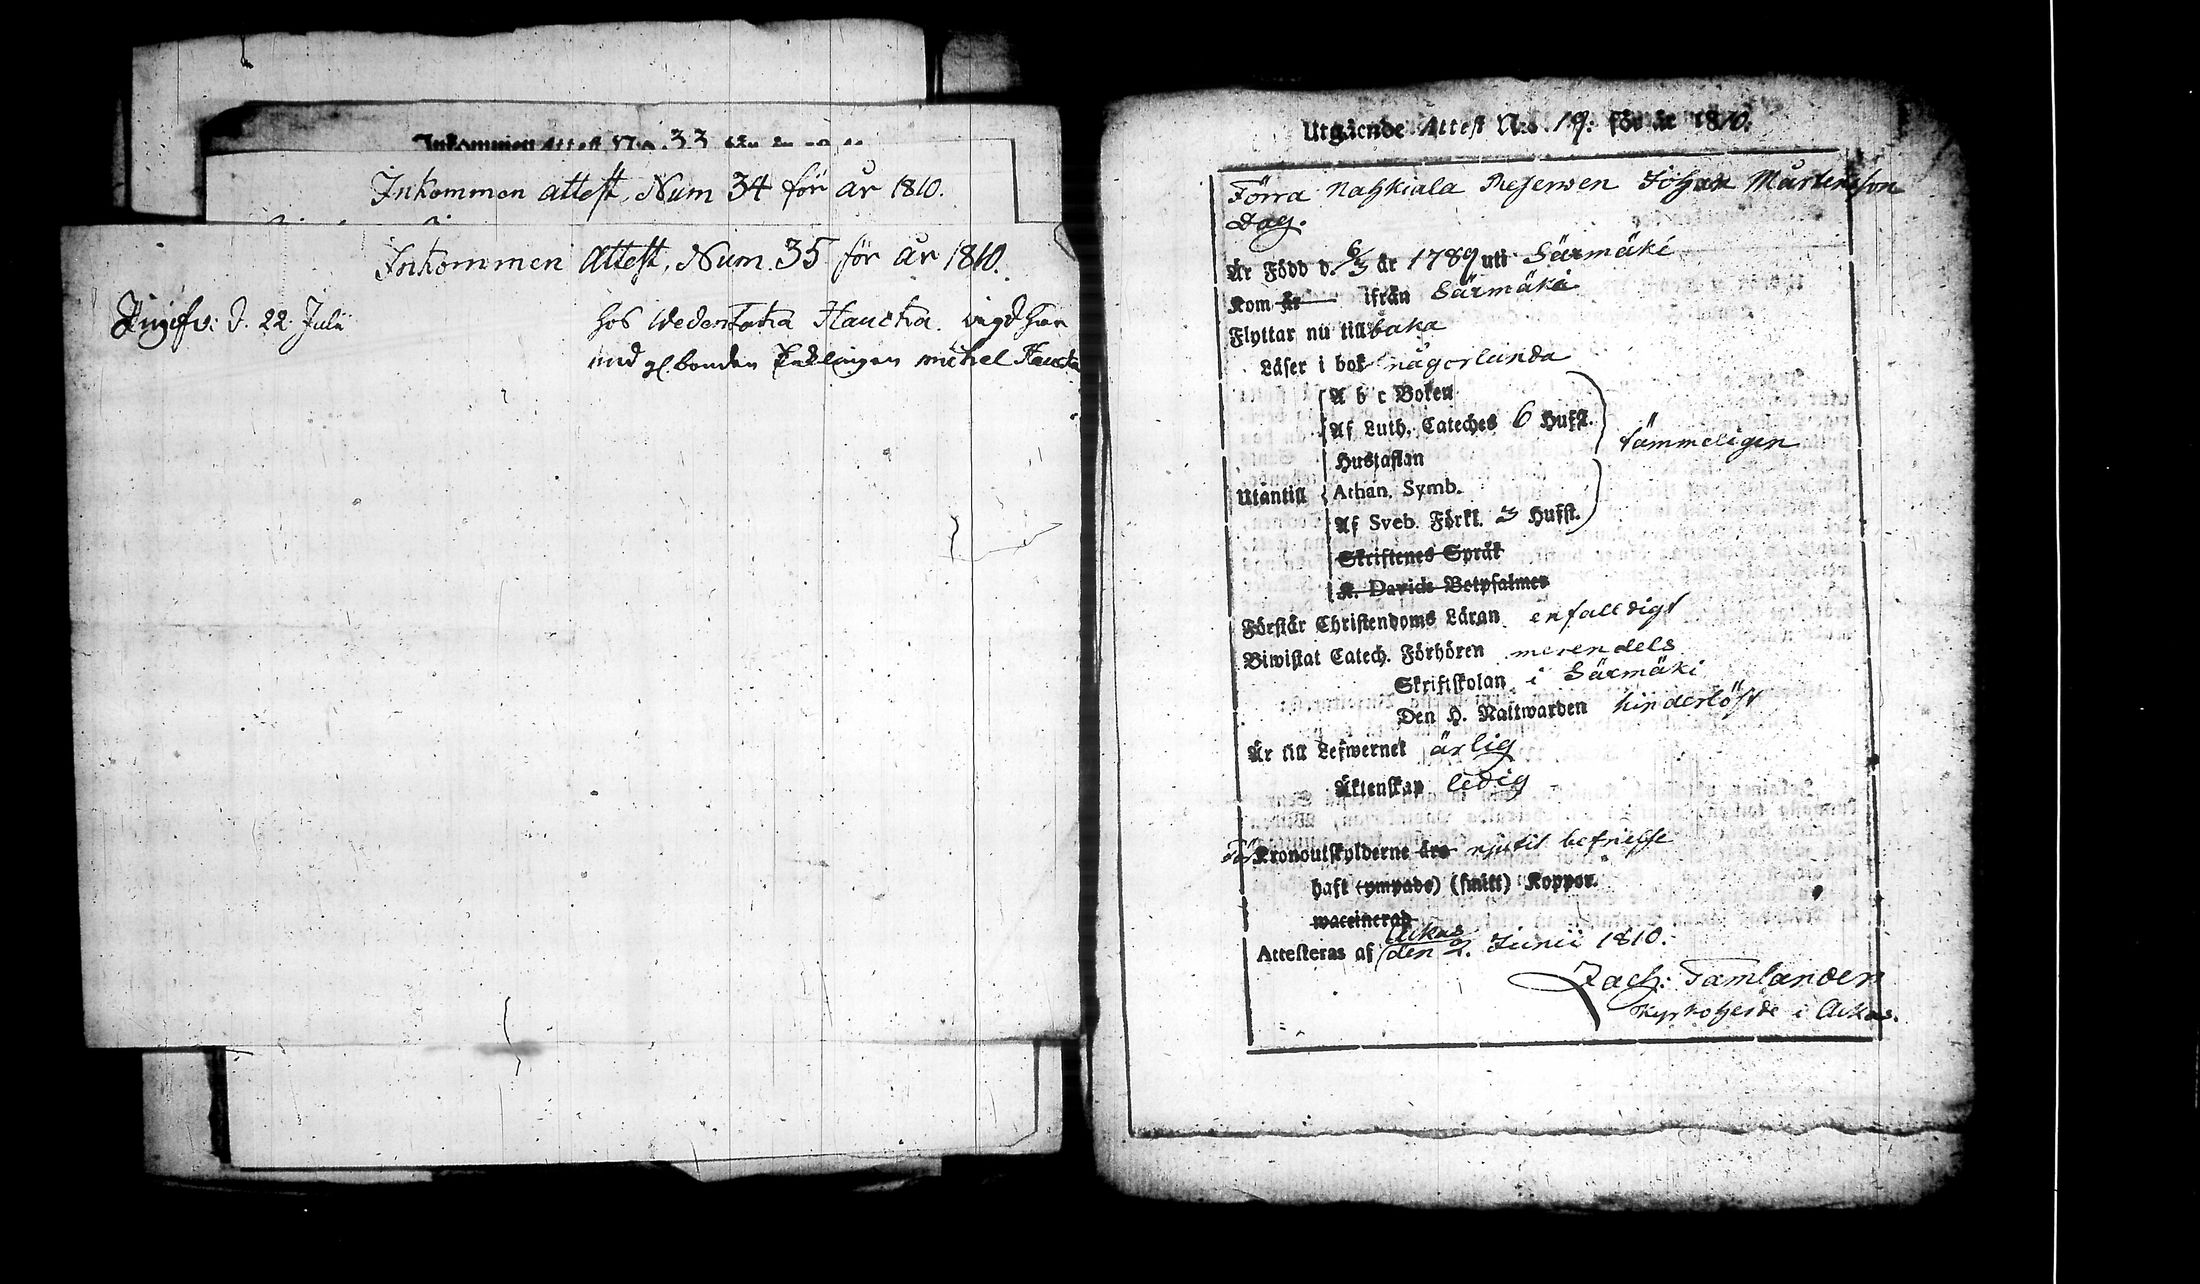 Inkommen Attest No. 33 för år
Inkommen attest, Num 34 för år 1810.
Inkommen Attest, Num. 35 för år 1810.
d. 22 Julii
hos Wedentaka Haucka. vigd här
med gl. bonden michel Haucka
Utgående Attest N:o 19: för år 1810.
Förra Nahkiala Johan Mårtensson
Dag.
Är Född d. 6/3 år 1789 uti Särmäki
Kom år ifrån Särmäki
Flyttar nu tillbaka
Läser i bok någorlunda
A b c Boken
Af Luth. Cateches 6 Hufst.
tämmeligen
Hustaflan
Utantill Athan. Symb.
Af Sveb. Förkl. 3 Hufst.
Skriftenes Språk
K. Davids Botpsalmer
Förstår Christendoms Läran enfalldigt
Biwistat Catech. Förhören merendels
Skriftskolan i Särmäki
Den H. Nattwarden hinderlöst
Är till Lefwernet ärlig
Äktenskap ledig
För Kronoutskylderne äro njutit befrielse
haft (ympade) (smitt) Koppor.
waccinerad
Attesteras af Ackas
den 2. Junii 1810.
Zach: Tamlander
Kyrkoherde i Ackas.